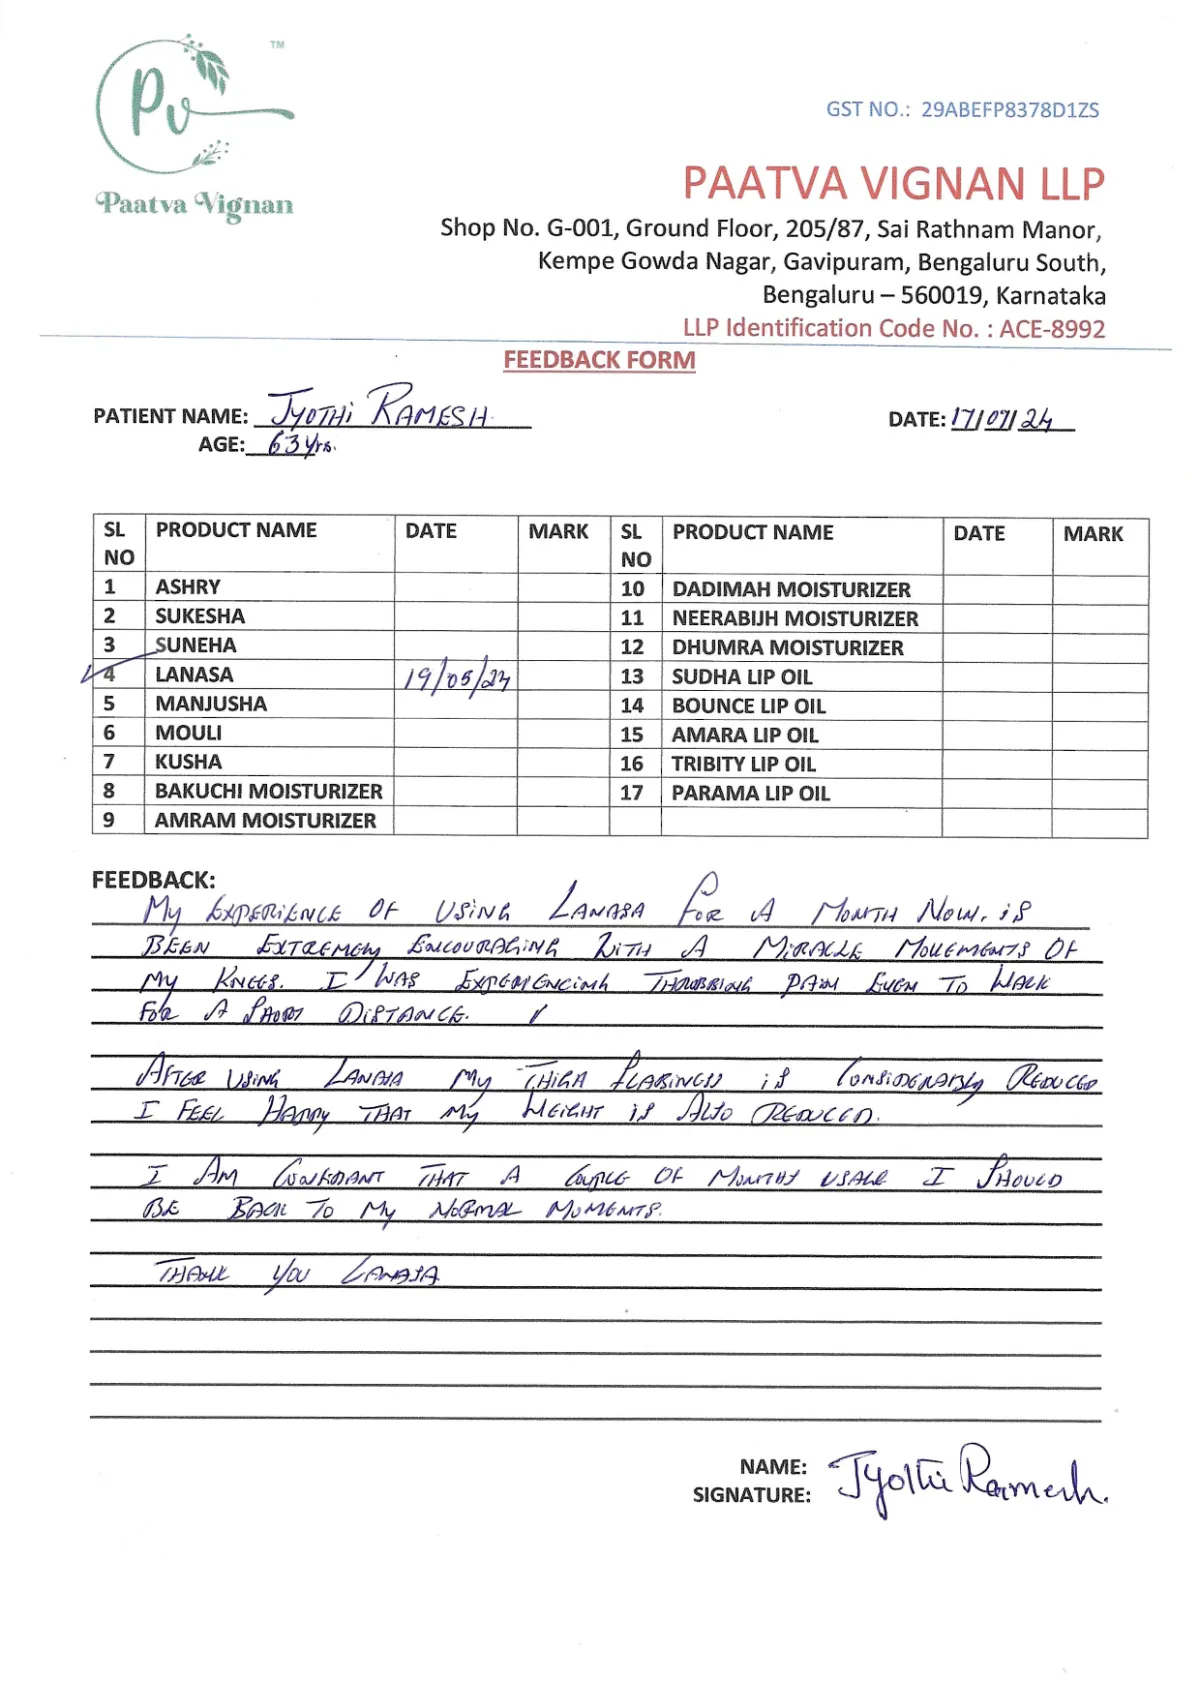 TM
Pv
Paatva Vignan
GST NO.: 29ABEFP8378D1ZS
PAATVA VIGNAN LLP
Shop No. G-001, Ground Floor, 205/87, Sai Rathnam Manor,
Kempe Gowda Nagar, Gavipuram, Bengaluru South,
Bengaluru – 560019, Karnataka
LLP Identification Code No. : ACE-8992
FEEDBACK FORM
PATIENT NAME: JYOTHI RAMESH DATE: 17/07/24
AGE: 63 yrs.
SL NO PRODUCT NAME DATE MARK SL NO PRODUCT NAME DATE MARK
1 ASHRY 10 DADIMAH MOISTURIZER
2 SUKESHA 11 NEERABIJH MOISTURIZER
3 SUNEHA 12 DHUMRA MOISTURIZER
4 LANASA 19/05/24 13 SUDHA LIP OIL
5 MANJUSHA 14 BOUNCE LIP OIL
6 MOULI 15 AMARA LIP OIL
7 KUSHA 16 TRIBITY LIP OIL
8 BAKUCHI MOISTURIZER 17 PARAMA LIP OIL
9 AMRAM MOISTURIZER
FEEDBACK:
MY EXPERIENCE OF USING LANASA FOR A MONTH NOW, IS
BEEN EXTREMELY ENCOURAGING WITH A MIRACLE MOVEMENTS OF
MY KNEES. I WAS EXPERIENCING THROBBING PAIN EVEN TO WALK
FOR A SHORT DISTANCE.
AFTER USING LANASA MY THIGH IS CONSIDERABLY REDUCED
I FEEL HAPPY THAT MY WEIGHT IS ALSO REDUCED.
I AM CONFIDANT THAT A COUPLE OF MONTHS USAGE I SHOULD
BE BACK TO MY NORMAL MOMENTS.
THANK YOU LANASA
NAME: Jyothi Ramesh.
SIGNATURE: